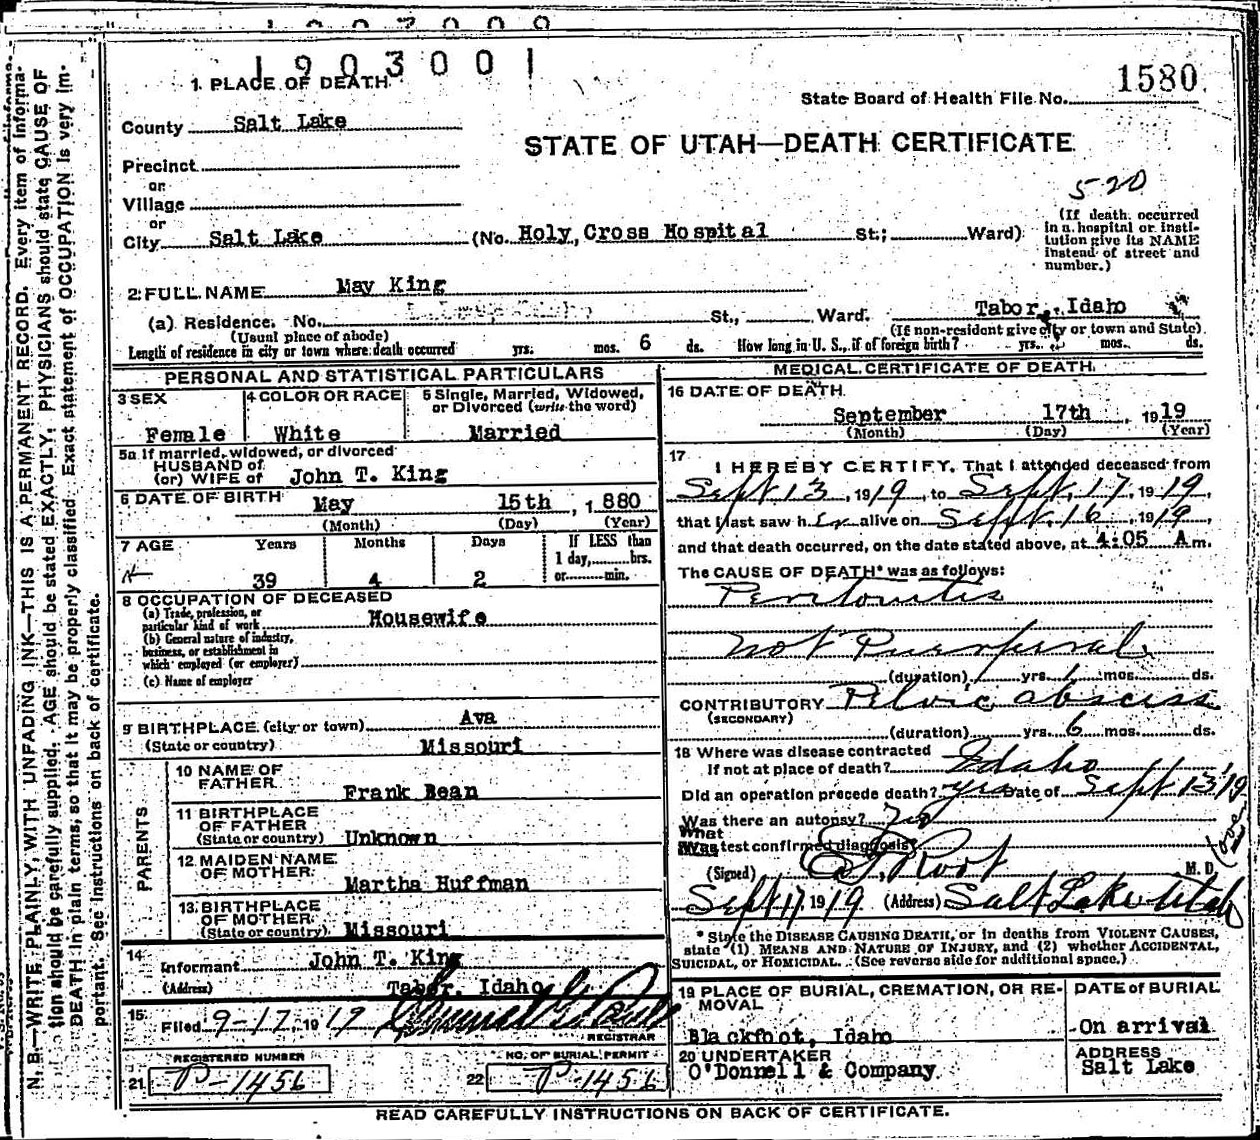 1903001
1580
1 PLACE OF DEATH
State Board of Health File No.
County Salt Lake
STATE OF UTAH—DEATH CERTIFICATE
Precinct
or
Village
520
or
City Salt Lake (No. Holy, Cross Hospital St.; Ward)
(If death occurred in a hospital or institution give its NAME instead of street and number.)
2 FULL NAME May King
(a) Residence. No. St., Ward. Tabor, Idaho
(Usual place of abode) (If non-resident give city or town and State)
Length of residence in city or town where death occurred yrs. mos. 6 ds. How long in U. S., if of foreign birth? yrs. mos. ds.
PERSONAL AND STATISTICAL PARTICULARS
3 SEX 4 COLOR OR RACE 5 Single, Married, Widowed, or Divorced (write the word)
Female White Married
5a If married, widowed, or divorced
HUSBAND of
(or) WIFE of John T. King
6 DATE OF BIRTH May 15th, 1880
(Month) (Day) (Year)
7 AGE Years Months Days If LESS than
1 day, hrs.
39 4 2 or min.
8 OCCUPATION OF DECEASED
(a) Trade, profession, or
particular kind of work Housewife
(b) General nature of industry,
business, or establishment in
which employed (or employer)
(c) Name of employer
9 BIRTHPLACE (city or town) Ava
(State or country) Missouri
PARENTS
10 NAME OF
FATHER Frank Bean
11 BIRTHPLACE
OF FATHER
(State or country) Unknown
12 MAIDEN NAME
OF MOTHER Martha Huffman
13 BIRTHPLACE
OF MOTHER
(State or country) Missouri
14
Informant John T. King
(Address) Tabor, Idaho
15
Filed 9-17, 1919
REGISTRAR
REGISTERED NUMBER NO. OF BURIAL PERMIT
21 P-1456 22 P-1456
MEDICAL CERTIFICATE OF DEATH
16 DATE OF DEATH
September 17th, 1919
(Month) (Day) (Year)
17
I HEREBY CERTIFY, That I attended deceased from
Sept 13, 1919, to Sept. 17, 1919,
that I last saw h er alive on Sept. 16, 1919
and that death occurred, on the date stated above, at 4:05 A m.
The CAUSE OF DEATH* was as follows:
Peritonitis
not Puerperal
(duration) yrs. 1 mos. ds.
CONTRIBUTORY Pelvic abscess
(SECONDARY)
(duration) yrs. 6 mos. ds.
18 Where was disease contracted
If not at place of death? Idaho
Did an operation precede death? yes Date of Sept 13 '19
Was there an autopsy? no
What test confirmed diagnosis?
(over)
(Signed) Root M. D.
Sept 17, 1919 (Address) Salt Lake Utah
* State the DISEASE CAUSING DEATH, or in deaths from VIOLENT CAUSES,
state (1) MEANS AND NATURE OF INJURY, and (2) whether ACCIDENTAL,
SUICIDAL, or HOMICIDAL. (See reverse side for additional space.)
19 PLACE OF BURIAL, CREMATION, OR REMOVAL DATE of BURIAL
Blackfoot, Idaho On arrival
20 UNDERTAKER ADDRESS
O'Donnell & Company Salt Lake
READ CAREFULLY INSTRUCTIONS ON BACK OF CERTIFICATE.
N. B.—WRITE PLAINLY, WITH UNFADING INK—THIS IS A PERMANENT RECORD. Every item of informa-
tion should be carefully supplied. AGE should be stated EXACTLY. PHYSICIANS should state CAUSE OF
DEATH in plain terms, so that it may be properly classified. Exact statement of OCCUPATION is very im-
portant. See instructions on back of certificate.